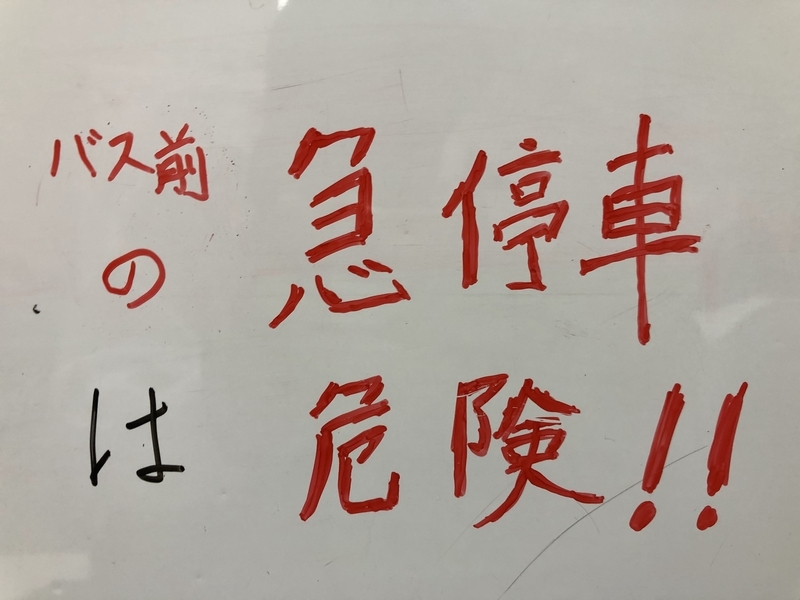 バス前
の
は
急停車
危険!!